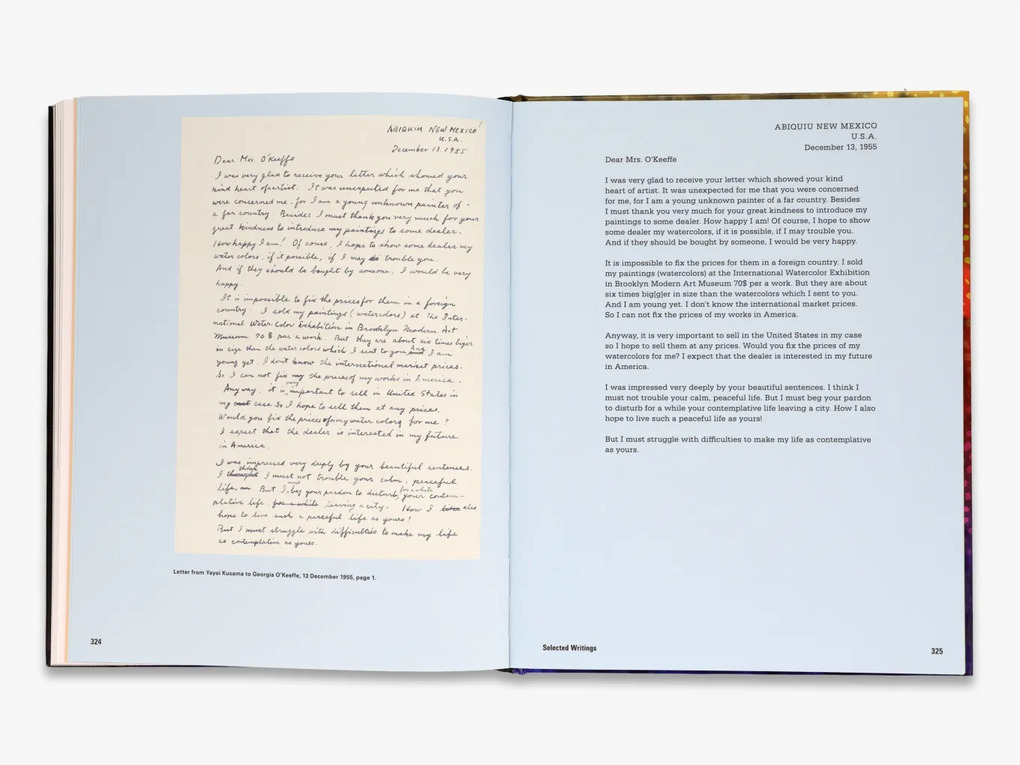 ABIQUIU NEW MEXICO
U.S.A.
December 13. 1955
Dear Mrs. O'Keeffe
I was very glad to receive your letter which showed your
kind heart of artist. It was unexpected for me that you
were concerned me, for I am a young unknown painter of
a far country. Besides I must thank you very much for your
great kindness to introduce my paintings to some dealer.
How happy I am! Of corse, I hope to show some dealer my
water colors, if it possible, if I may trouble you.
And if they should be bought by someone, I would be very
happy.
It is impossible to fix the prices for them in a foreign
country. I sold my paintings (watercolors) at the Inter-
national Water-Color Exhibition in Brooklyn Modern Art
Museum 70 $ par a work. But they are about six times biger
in size than the water colors which I sent to you. And I am
young yet. I don't know the international market prices.
So I can not fix the prices of my works in America.
Anyway, it is very important to sell in United States in
my case. So I hope to sell them at any prices.
Would you fix the prices of my water colors for me?
I expect that the dealer is interested in my future
in America.
I was impressed very deeply by your beautiful sentences.
I think I must not trouble your calm, peaceful
life. But I must beg your pardon to disturb for a while your contem-
plative life leaving a city. How I also
hope to live such a peaceful life as yours!
But I must struggle with difficulties to make my life
as contemplative as yours.
Letter from Yayoi Kusama to Georgia O'Keeffe, 13 December 1955, page 1.
324
ABIQUIU NEW MEXICO
U.S.A.
December 13, 1955
Dear Mrs. O'Keeffe
I was very glad to receive your letter which showed your kind
heart of artist. It was unexpected for me that you were concerned
for me, for I am a young unknown painter of a far country. Besides
I must thank you very much for your great kindness to introduce my
paintings to some dealer. How happy I am! Of course, I hope to show
some dealer my watercolors, if it is possible, if I may trouble you.
And if they should be bought by someone, I would be very happy.
It is impossible to fix the prices for them in a foreign country. I sold
my paintings (watercolors) at the International Watercolor Exhibition
in Brooklyn Modern Art Museum 70$ per a work. But they are about
six times big[g]er in size than the watercolors which I sent to you.
And I am young yet. I don't know the international market prices.
So I can not fix the prices of my works in America.
Anyway, it is very important to sell in the United States in my case
so I hope to sell them at any prices. Would you fix the prices of my
watercolors for me? I expect that the dealer is interested in my future
in America.
I was impressed very deeply by your beautiful sentences. I think I
must not trouble your calm, peaceful life. But I must beg your pardon
to disturb for a while your contemplative life leaving a city. How I also
hope to live such a peaceful life as yours!
But I must struggle with difficulties to make my life as contemplative
as yours.
Selected Writings
325